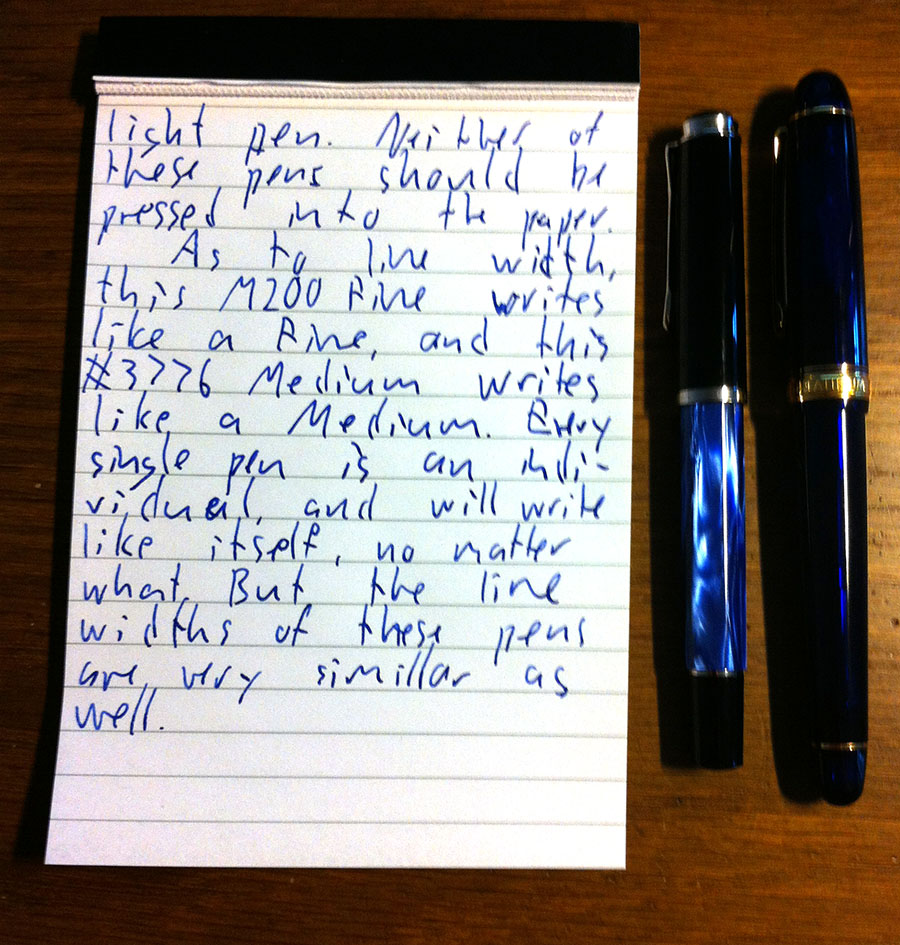 light pen. Neither of
these pens should be
pressed into the paper.
As to line width,
this M200 Fine writes
like a Fine, and this
#3776 Medium writes
like a Medium. Every
single pen is an indi-
vidual, and will write
like itself, no matter
what. But the line
widths of these pens
are very simillar as
well.